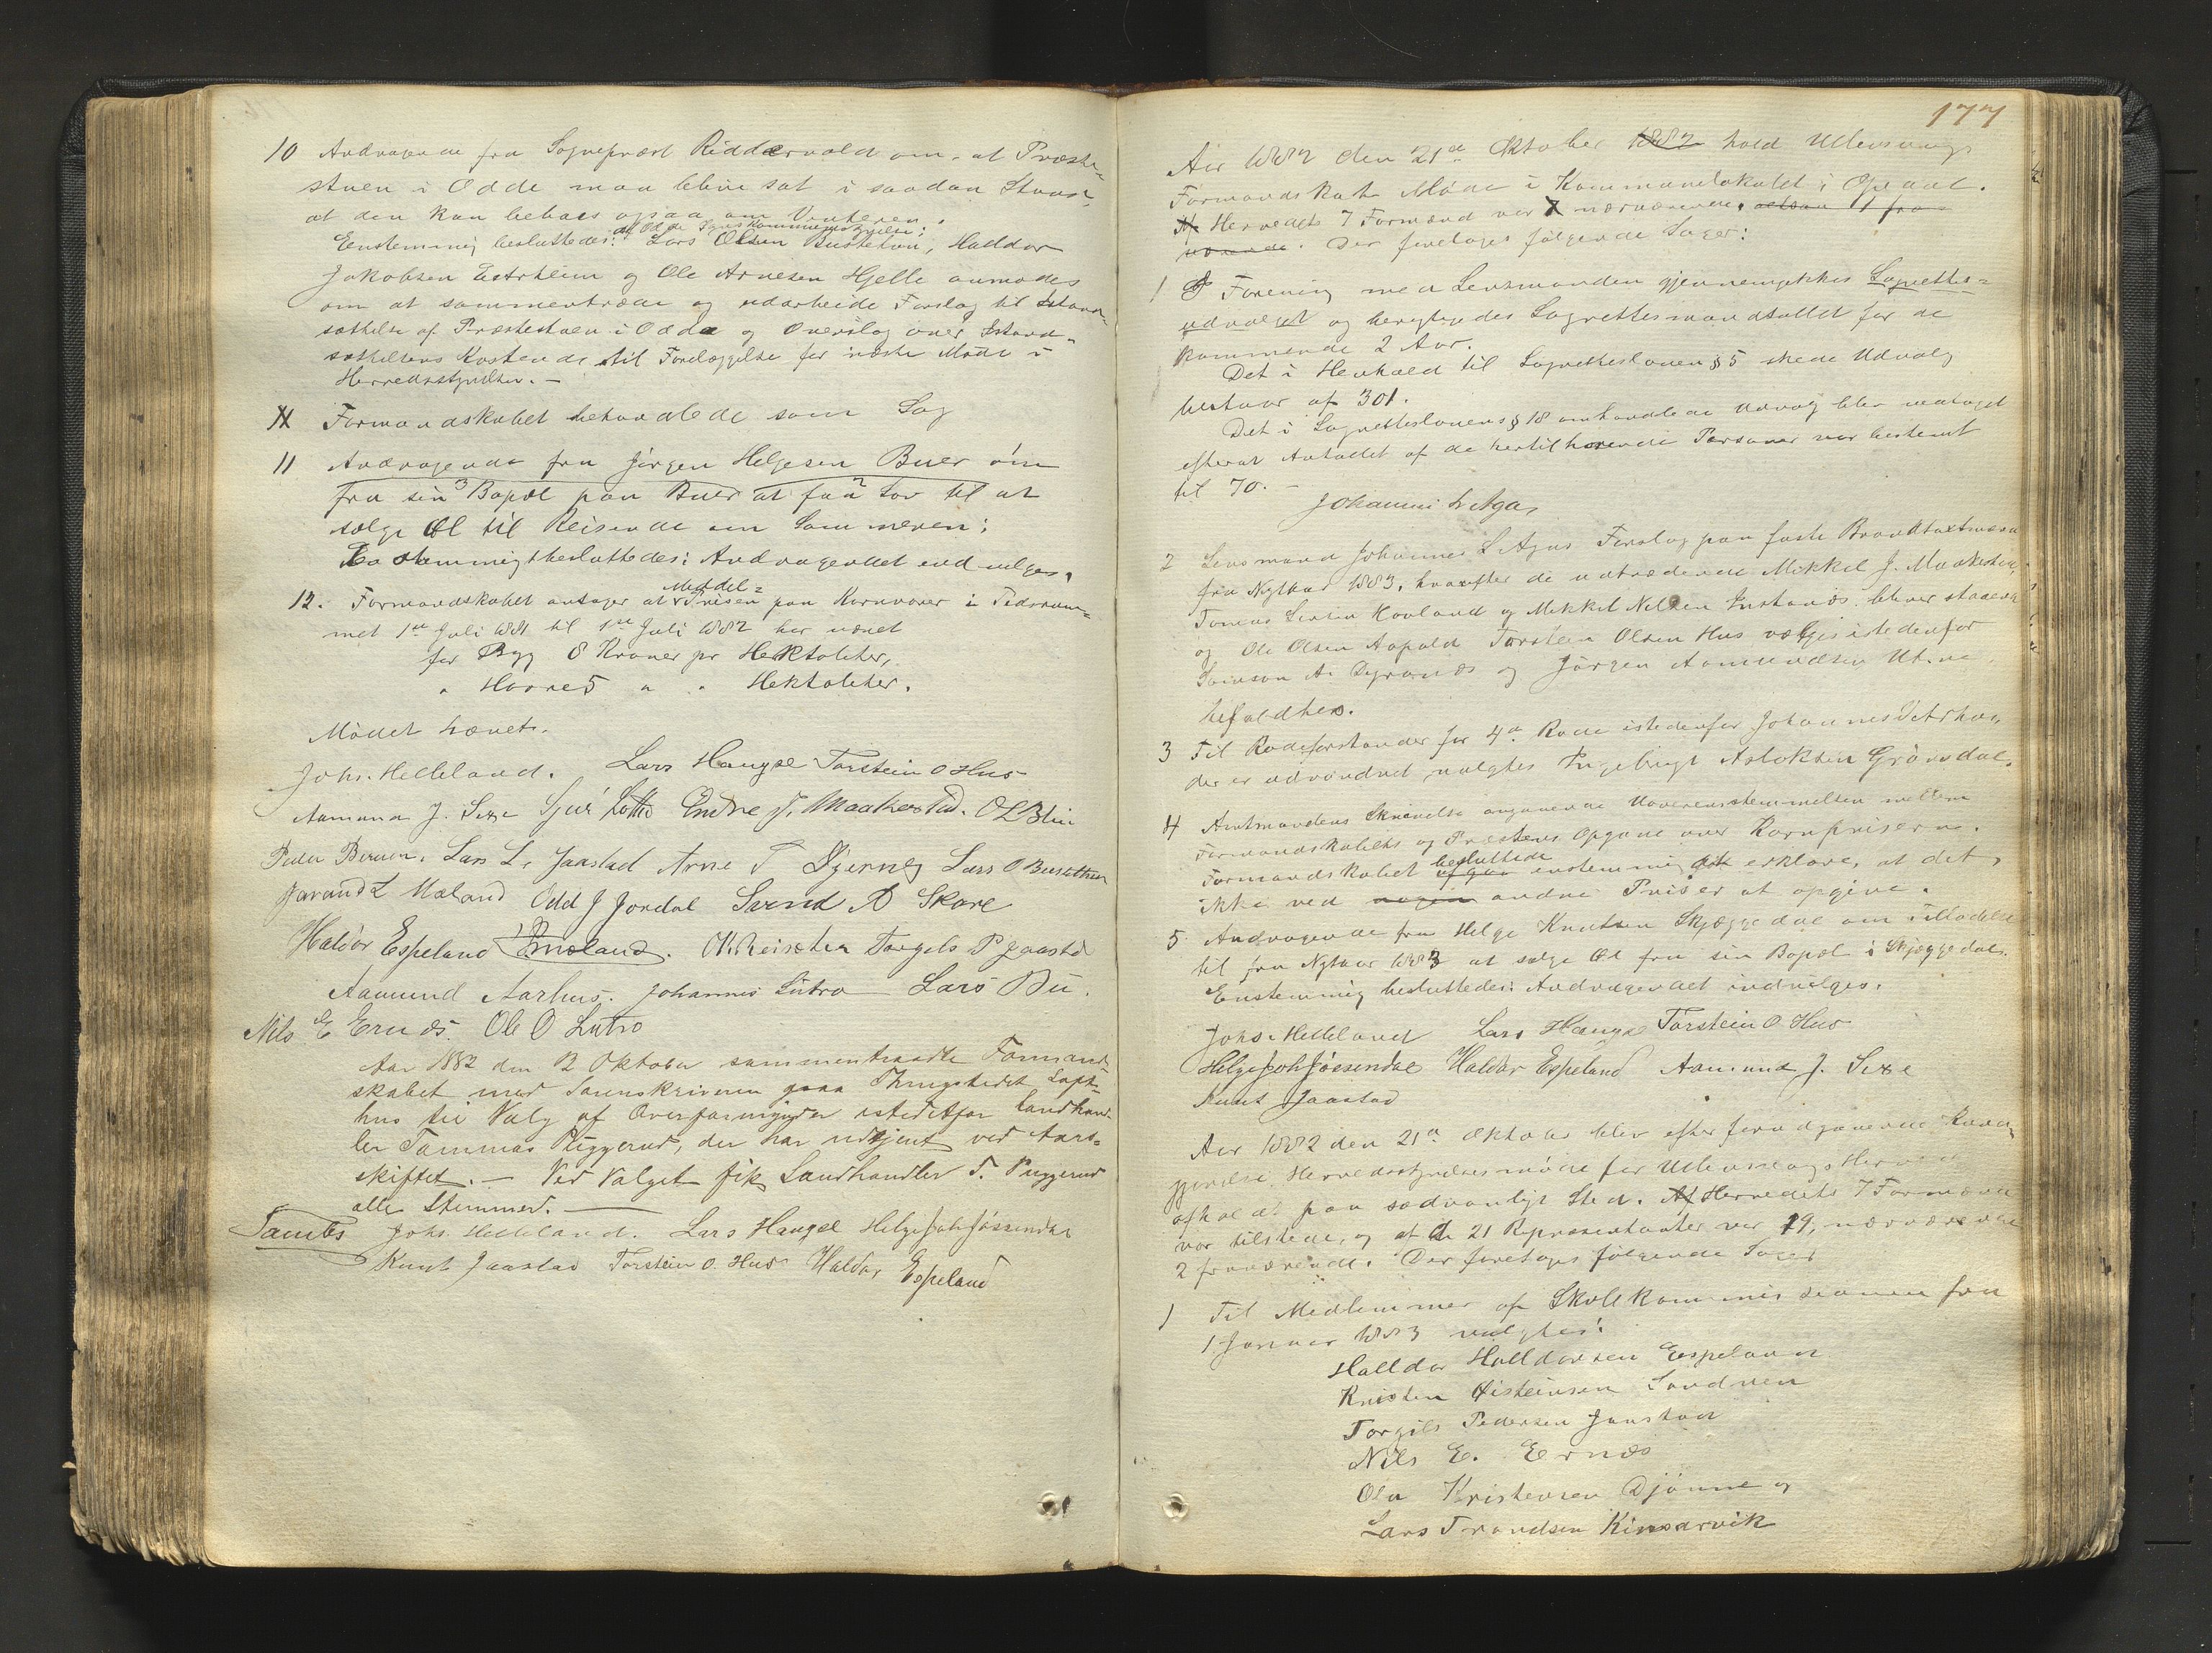 10 Andragende fra Sogneprest Riddervold om, at Præste-
stuen i Odde maa blive sat i saadan Stand,
at den kan beboes ogsaa om Vinteren.
Enstemmig besluttedes: af Odde Sognekommunestyrelse: Lars Olsen Bustetun, Haldor
Jakobsen Eitrheim og Ole Arnesen Hjelle anmodes
om at sammentræde og udarbeide Forslag til Istand-
sættelse af Præstestuen i Odde og Overslag over Istand-
sættelsens Kostende til Forelæggelse for næste Møde i
Herredsstyrelsen. —
11 Formandskabet behandlede som Sag
11 Andragende fra Jørgen Helgesen Buer om
fra sin 3 Bopæl paa Buer at faa 2 Lov til at
sælge Øl til Reisende om Sommeren;
Enstemmigt besluttedes: Andragendet indvilges.
12. Formandskabet antager at Middel= Prisen paa Kornvarer i Tidsrum=
met 1ste Juli 1881 til 1ste Juli 1882 har været
for Byg 8 Kroner pr Hektoliter,
" Havre 5 " " Hektoliter.
Mødet hævet.
Johs. Helleland. Lars Haugse Torstein O Hus
Aamund J. Sexe Sjur Lothe Endre J. Maakestad. O L Blie
Peder Berven. Lars L. Jaastad Arne T Bjerne Lars O Bustethun
Javand L Mæland Odd J Jordal Svend A Skare
Haldor Espeland Mæland. O K Reisæter Torgils P Jaastad
Aamund Aarhus. Johannes Lutro Lars Bu.
Nils E Ernæs. Ole O Lutro
Aar 1882 den 12 Oktober sammentraadte Formand-
skabet med Sorenskriveren paa Thingstedet Loft-
hus til Valg af Overformynder istedetfor Landhand-
ler Tommas Puggerud, der har udtjent ved Aars-
skiftet. — Ved Valget fik Landhandler T. Puggerud
alle Stemmer. —
Tambs Johs. Helleland. Lars Haugse Helge Joh Jøssendal
Knut Jaastad Torstein O. Hus Haldor Espeland
177
Aar 1882 den 21de Oktober 1882 hold Ullensvangs
Formandskab Møde i Kommunelokalet i Opedal.
Af Herredets 7 Formænd var 7 nærværende, altsaa 1 fra-
værende. Der foretages følgende Sager:
1 I Forening med Lensmanden gjennemgikkes Lagrettes=
udvalget og berigtigedes Lagrettesmandstallet for de
kommende 2 Aar.
Det i Henhold til Lagrettesloven § 5 skede Udvalg
bestaar af 301.
Det i Lagretteslovens § 18 omhandlede Udvalg blev vedtaget
efterat Antallet af de hertil hørende Personer var bestemt
til 70. —
Johannes L Aga,
2 Lensmand Johannes L Agas Forslag paa faste Brandtaxtmænd
fra Nytaar 1883, hvorefter de udtrædende Mikkel J. Maakestad,
Tomas Larsen Hovland og Mikkel Nilsen Instanæs bliver staaende
og Ole Olsen Aapold Torstein Olsen Hus vælges istedenfor
Samson A. Digranæs og Jørgen Aamundsen Utne
befaldtes.
3 Til Rodeforstander for 4de Rode istedenfor Johannes Aarhus,
der er udvandret valgtes Ingebrigt Aslaksen Grønsdal.
4 Amtmandens Skrivelse angaaende Uoverensstemmelsen mellem
Formandskabets og Præstens Opgave over Kornpriserne.
Formandskabet afgav besluttede enstemmig at erklære, at det
ikke ved nogen andre Priser at opgive.
5 Andragende fra Helge Knutsen Skjæggedal om Tilladelse
til fra Nytaar 1883 at sælge Øl fra sin Bopæl i Skjæggedal.
Enstemmig besluttedes: Andragendet indvilges.
Johs. Helleland Lars Haugse Torstein O. Hus
Helge Joh Jøssendal Haldor Espeland Aamund J. Sexe
Knut Jaastad
Aar 1882 den 21de Oktober blev efter forudgaaende Kund-
gjørelse Herredsstyrelsesmøde for Ullensvangs Herred
afholdt paa sædvanligt Sted. Af Herredets 7 Formænd
var tilstede, og af de 21 Repræsentanter var 19, nærværende
2 fraværende. Der foretages følgende Sager
1 Til Medlemmer af Skolekommissionen fra
1. Januar 1883 valgtes:
Halldor Halldorsen Espeland
Kristen Østeinsen Sandven
Torgils Pedersen Jaastad
Nils E. Ernæs
Ola Kristensen Djønne og
Lars Trondsen Kinsarvik